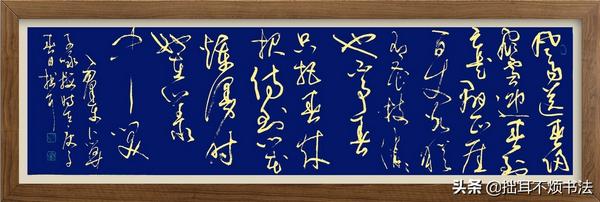 风雨送春归
飞雪迎春到
已是悬崖
百丈冰犹
有花枝俏俏
也不争春
只把春来
报待到山花
烂漫时
她在丛
中笑
毛泽东卜算
子咏梅时在庚子
春日拙耳
头条 @拙耳不烦书法